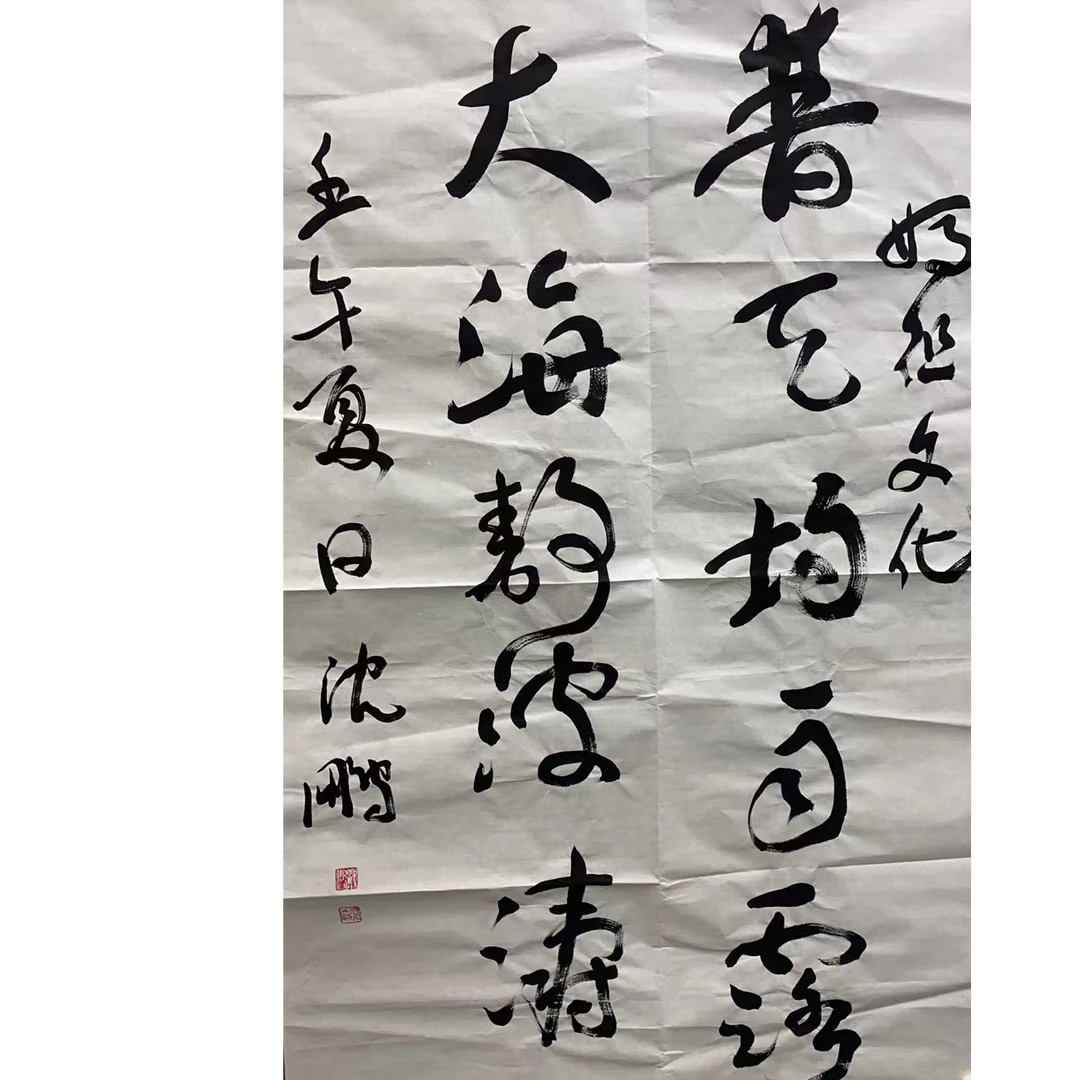 妈祖文化
普天均雨露
大海静波涛
壬午夏日沈鹏